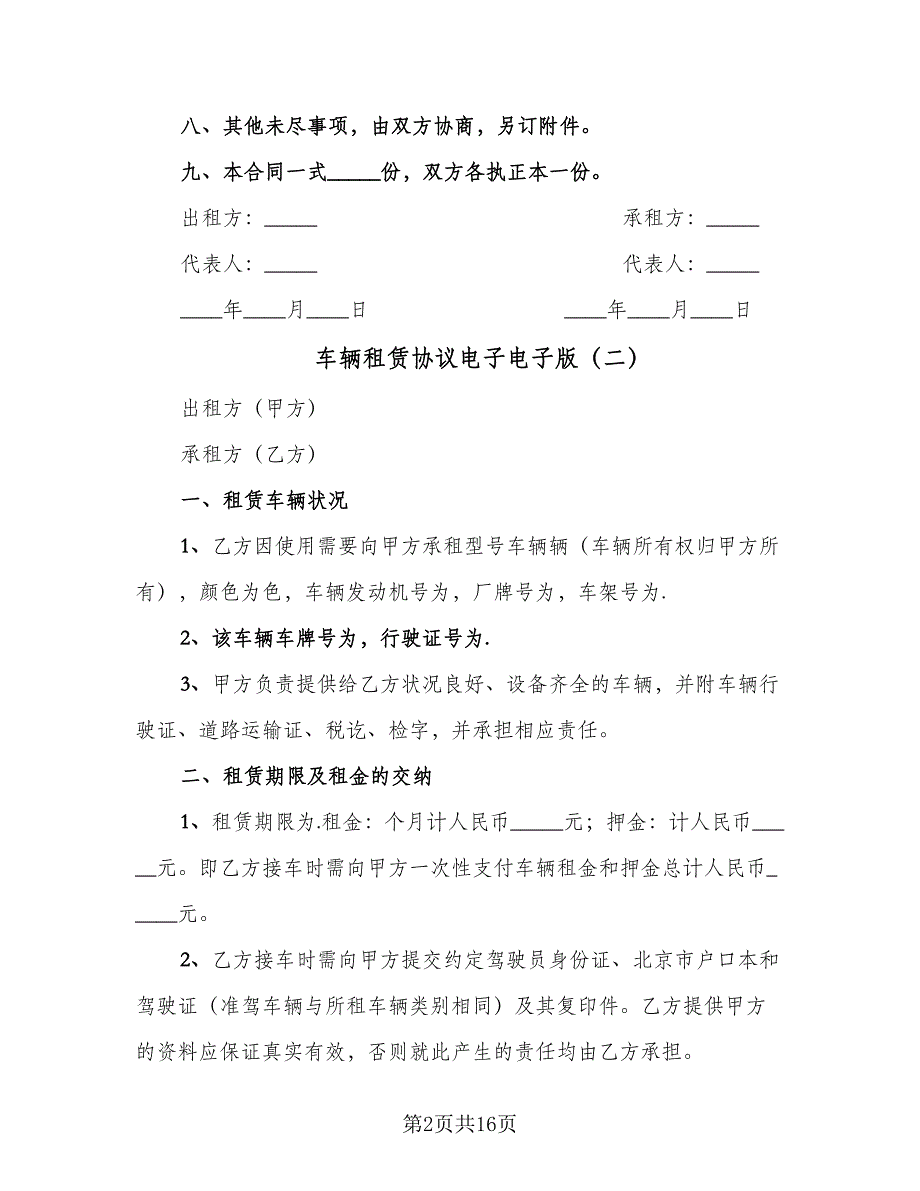 八、其他未尽事项，由双方协商，另订附件。
九、本合同一式_____份，双方各执正本一份。
出租方：_____ 承租方：_____
代表人：_____ 代表人：_____
____年____月____日 ____年____月____日
车辆租赁协议电子电子版（二）
出租方（甲方）
承租方（乙方）
一、租赁车辆状况
1、乙方因使用需要向甲方承租型号车辆辆（车辆所有权归甲方所
有），颜色为色，车辆发动机号为，厂牌号为，车架号为.
2、该车辆车牌号为，行驶证号为.
3、甲方负责提供给乙方状况良好、设备齐全的车辆，并附车辆行
驶证、道路运输证、税讫、检字，并承担相应责任。
二、租赁期限及租金的交纳
1、租赁期限为.租金：个月计人民币_____元；押金：计人民币___
__元。即乙方接车时需向甲方一次性支付车辆租金和押金总计人民币_
____元。
2、乙方接车时需向甲方提交约定驾驶员身份证、北京市户口本和
驾驶证（准驾车辆与所租车辆类别相同）及其复印件。乙方提供甲方
的资料应保证真实有效，否则就此产生的责任均由乙方承担。
第2页共16页